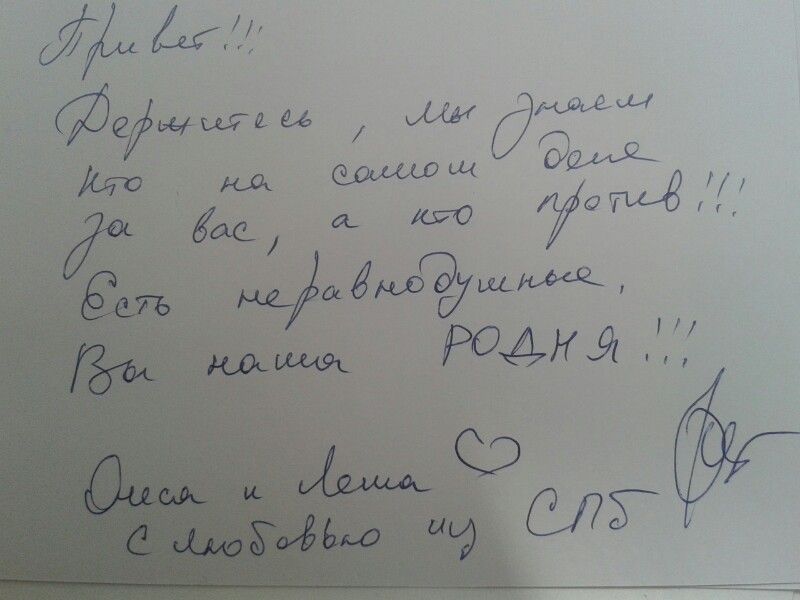 Привет!!!
Держитесь, мы знаем
кто на самом деле
за вас, а кто против!!!
Есть неравнодушные,
Вы наша РОДНЯ!!!
и Леша
с любовью из СПб